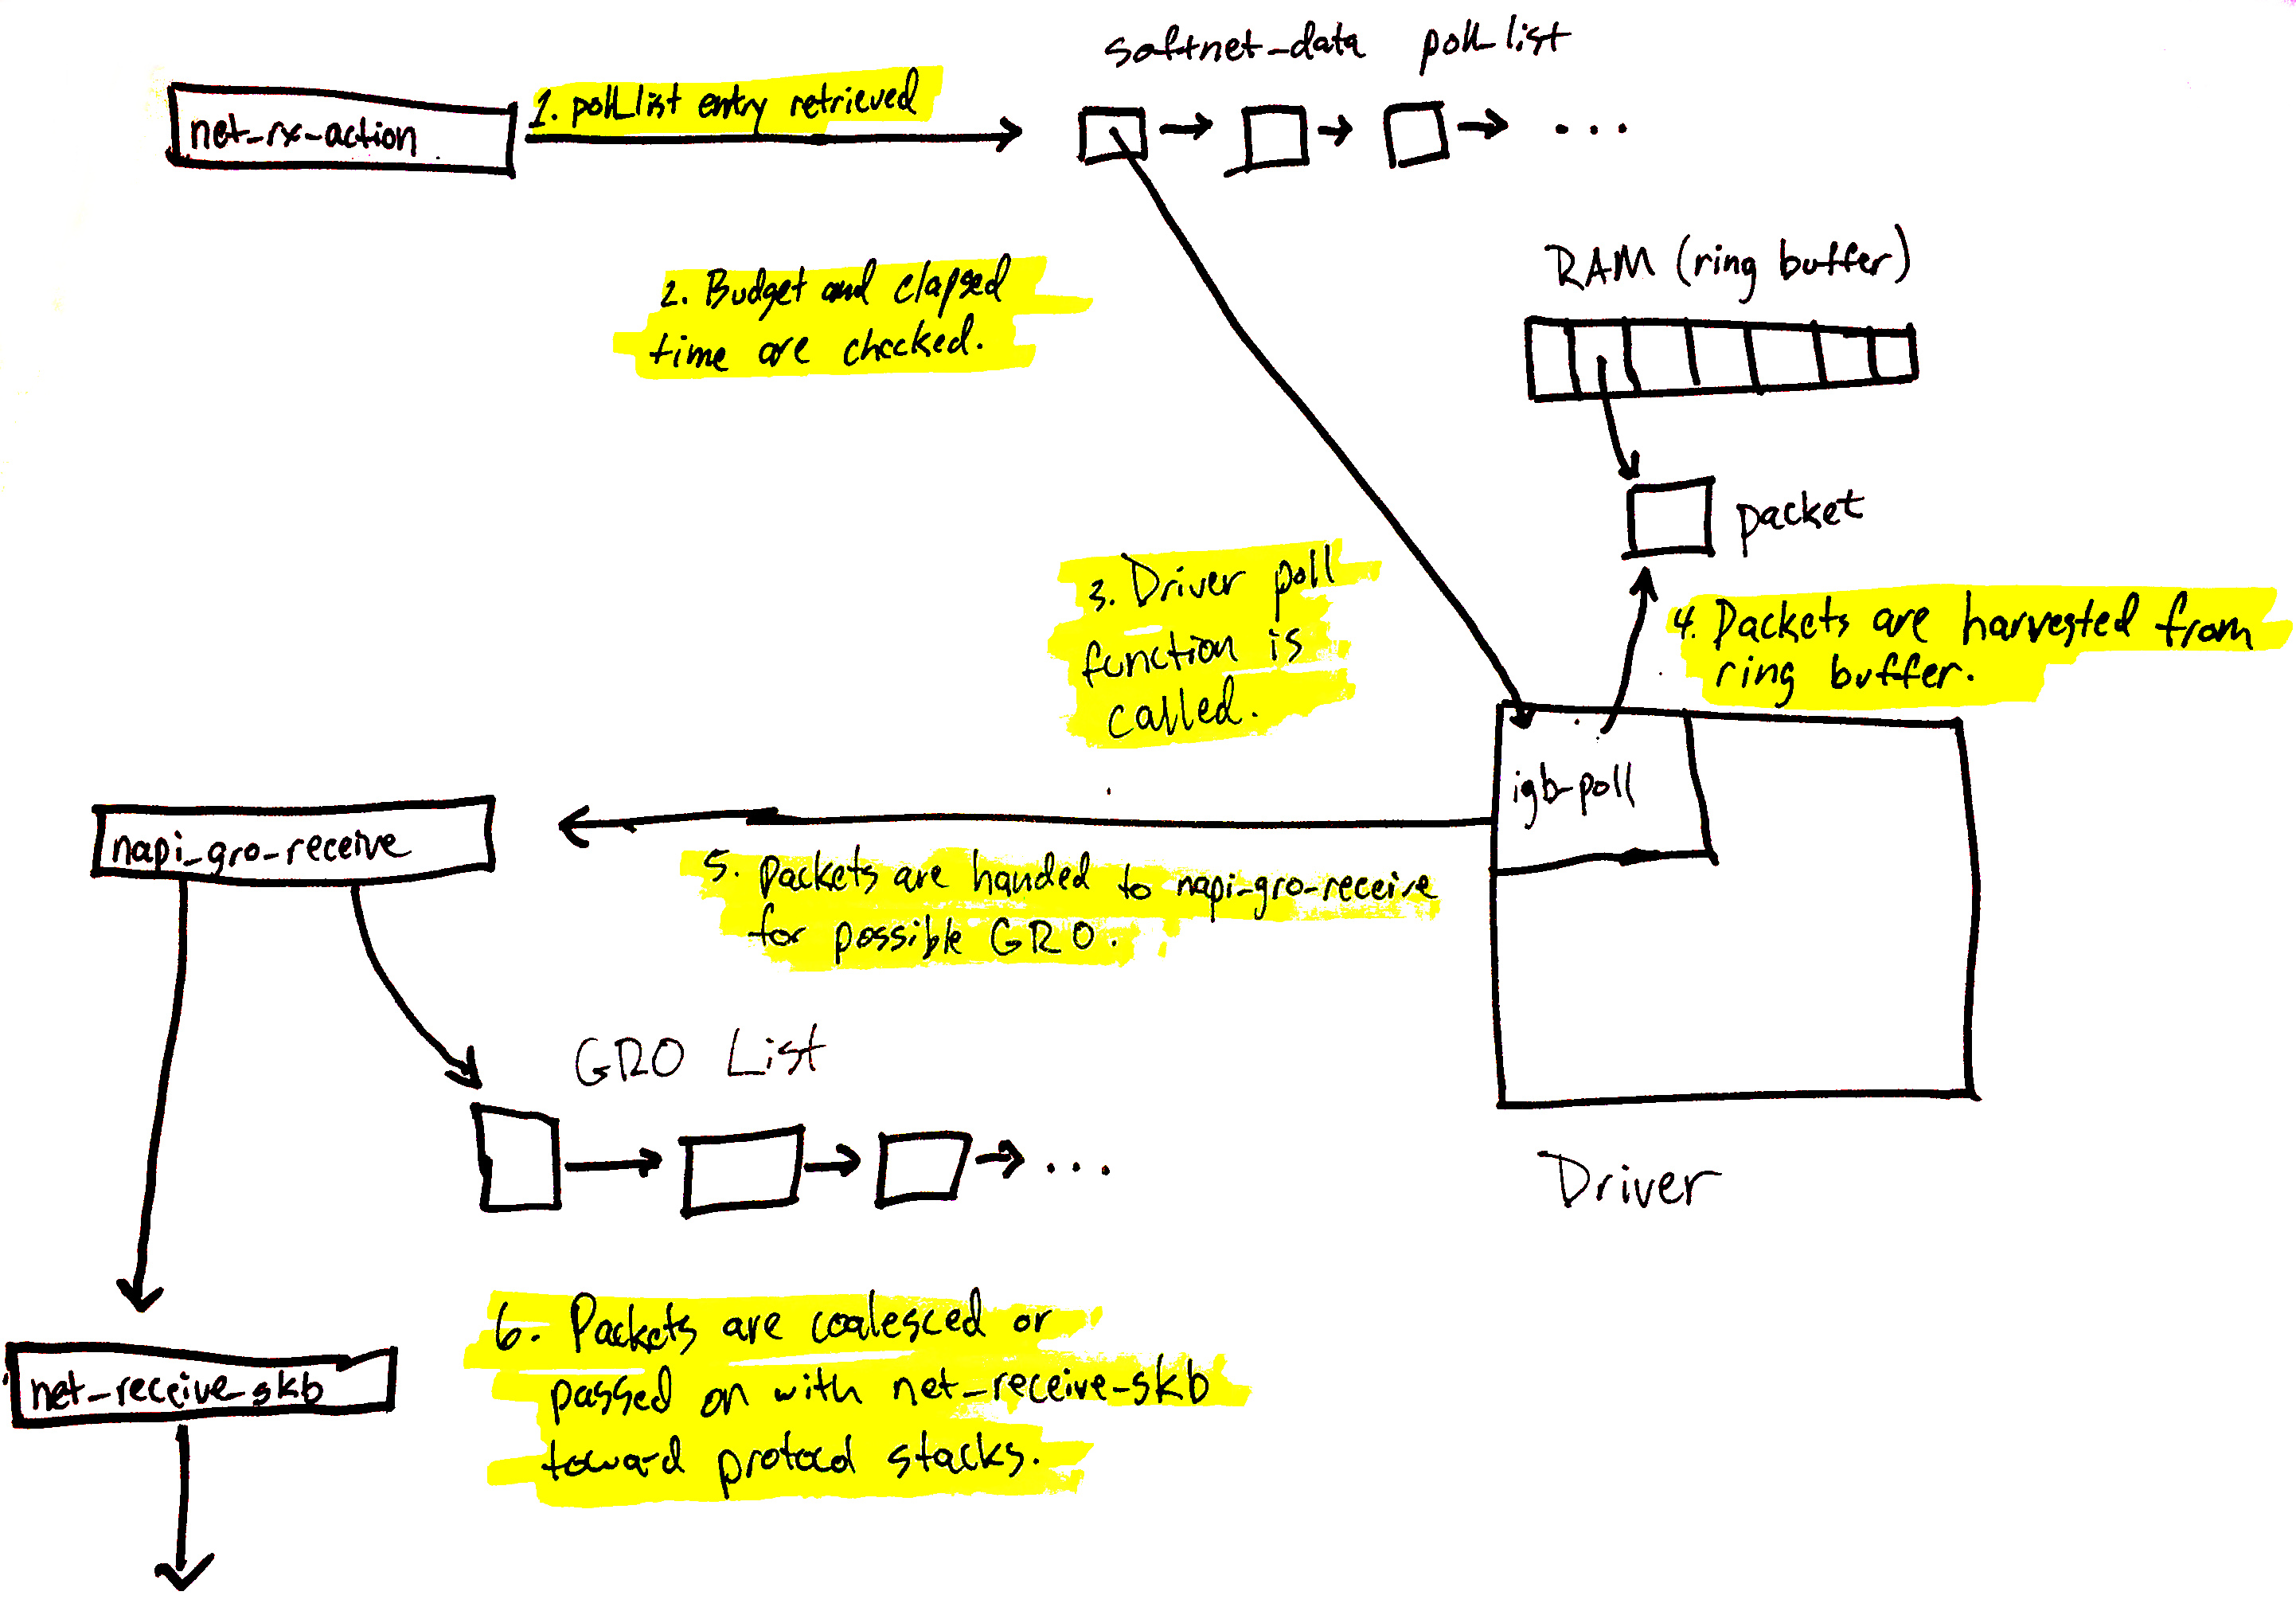 softnet_data poll_list
net_rx_action
1. poll_list entry retrieved
...
2. Budget and elapsed
time are checked.
RAM (ring buffer)
packet
3. Driver poll
function is
called.
4. Packets are harvested from
ring buffer.
igb_poll
napi_gro_receive
5. Packets are handed to napi_gro_receive
for possible GRO.
GRO List
...
Driver
6. Packets are coalesced or
passed on with net_receive_skb
toward protocol stacks.
net_receive_skb